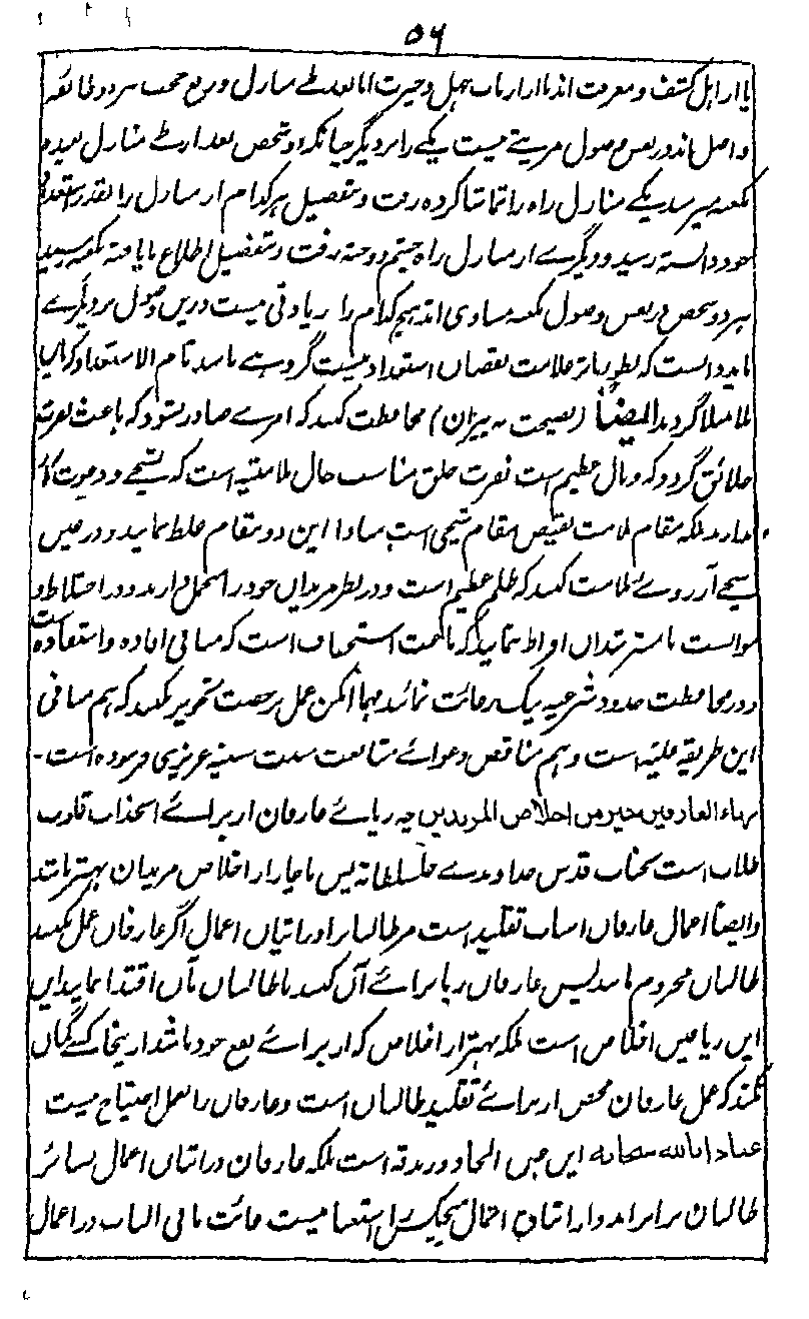 ۵۶
یا از اہل کشف و معرفت اند یا از ارباب جہل و حیرت اما بعد طے منازل و رفع حجب ہر دو طائفہ
واصل اند در نفس وصول مزیتے نیست یکے را بر دیگر چنانکہ دو شخص بعد از طے منازل بعیدہ
بکعبہ میرسد یکے منازل راہ را تماشا کردہ رفت و بتفصیل ہر کدام از منازل را بقدر استعداد
خود دانستہ رسید و دیگرے از منازل راہ چشم دوختہ رفت و بتفصیل اطلاع نایافتہ بکعبہ رسید
ہر دو شخص در نفس وصول کعبہ مساوی اند ہیچ کدام را زیادتی نیست درین وصول بر دیگرے
باید دانست کہ علامت نقصان استعداد نیست گروہے باشد تام الاستعداد کہ
مبتلا گردید ایضاً (نصیحت پیران) محافظت کنند کہ امرے صادر نشود کہ باعث نفرت
خلائق گردد کہ وبال عظیم است نفرت خلق مناسب حال ملامتیہ است کہ بشیخی و دعوت کار
ندارند بلکہ مقام ملامت نقیض مقام شیخی است مبادا این دو مقام خلط نمایند و در عین
شیخی آرزوے ملامت کنند کہ ظلم عظیم است و در نظر مریدان خود را متجمل دارند و در اختلاط و
موانست با مسترشدان افراط ننمایند کہ باعث استخفاف است کہ منافی افادہ و استفادہ است
و در محافظت حدود شرعیہ نیک رعایت نمایند مہما امکن عمل برخصت تجویز نکنند کہ ہم منافی
این طریقہ علیہ است و ہم مناقض دعوائے متابعت سنت سنیہ عزیزی فرمودہ است۔
ریاء العارفین خیر من اخلاص المریدین چہ ریائے عارفان از برائے انجذاب قلوب
طلاب است بجناب قدس خداوندے جل سلطانہ پس ناچار از اخلاص مریدان بہتر باشد
و ایضاً اعمال عارفان اسباب تقلید است مر طالبان را در اتیان اعمال اگر عارفان عمل نکنند
طالبان محروم مانند پس عارفان ریا برائے آن کنند تا طالبان بآن اقتدا نمایند این
این ریا عین اخلاص است بلکہ بہتر از اخلاص کہ از برائے نفع خود باشد ازینجا کسے گمان
نکند کہ عمل عارفان محض از برائے تقلید طالبان است و عارفان را بعمل احتیاج نیست
عیاذا باللہ سبحانہ این عین الحاد و زندقہ است بلکہ عارفان در اتیان اعمال بسائر
طالبان برابر اند و از اتیان اعمال ہیچکس را استغنا نیست غایت ما فی الباب در اعمال